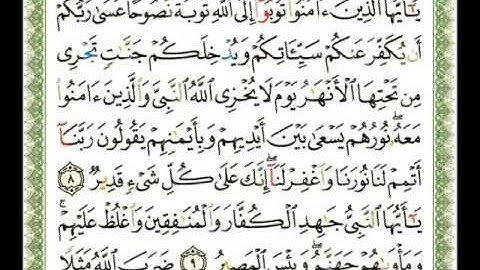 يَٰٓأَيُّهَا ٱلَّذِينَ ءَامَنُوا۟ تُوبُوٓا۟ إِلَى ٱللَّهِ تَوْبَةً نَّصُوحًا عَسَىٰ رَبُّكُمْ
أَن يُكَفِّرَ عَنكُمْ سَيِّـَٔاتِكُمْ وَيُدْخِلَكُمْ جَنَّٰتٍ تَجْرِى
مِن تَحْتِهَا ٱلْأَنْهَٰرُ يَوْمَ لَا يُخْزِى ٱللَّهُ ٱلنَّبِىَّ وَٱلَّذِينَ ءَامَنُوا۟
مَعَهُۥ ۖ نُورُهُمْ يَسْعَىٰ بَيْنَ أَيْدِيهِمْ وَبِأَيْمَٰنِهِمْ يَقُولُونَ رَبَّنَآ
أَتْمِمْ لَنَا نُورَنَا وَٱغْفِرْ لَنَآ ۖ إِنَّكَ عَلَىٰ كُلِّ شَىْءٍ قَدِيرٌ ٨
يَٰٓأَيُّهَا ٱلنَّبِىُّ جَٰهِدِ ٱلْكُفَّارَ وَٱلْمُنَٰفِقِينَ وَٱغْلُظْ عَلَيْهِمْ ۚ
وَمَأْوَىٰهُمْ جَهَنَّمُ ۖ وَبِئْسَ ٱلْمَصِيرُ ٩ ضَرَبَ ٱللَّهُ مَثَلًا